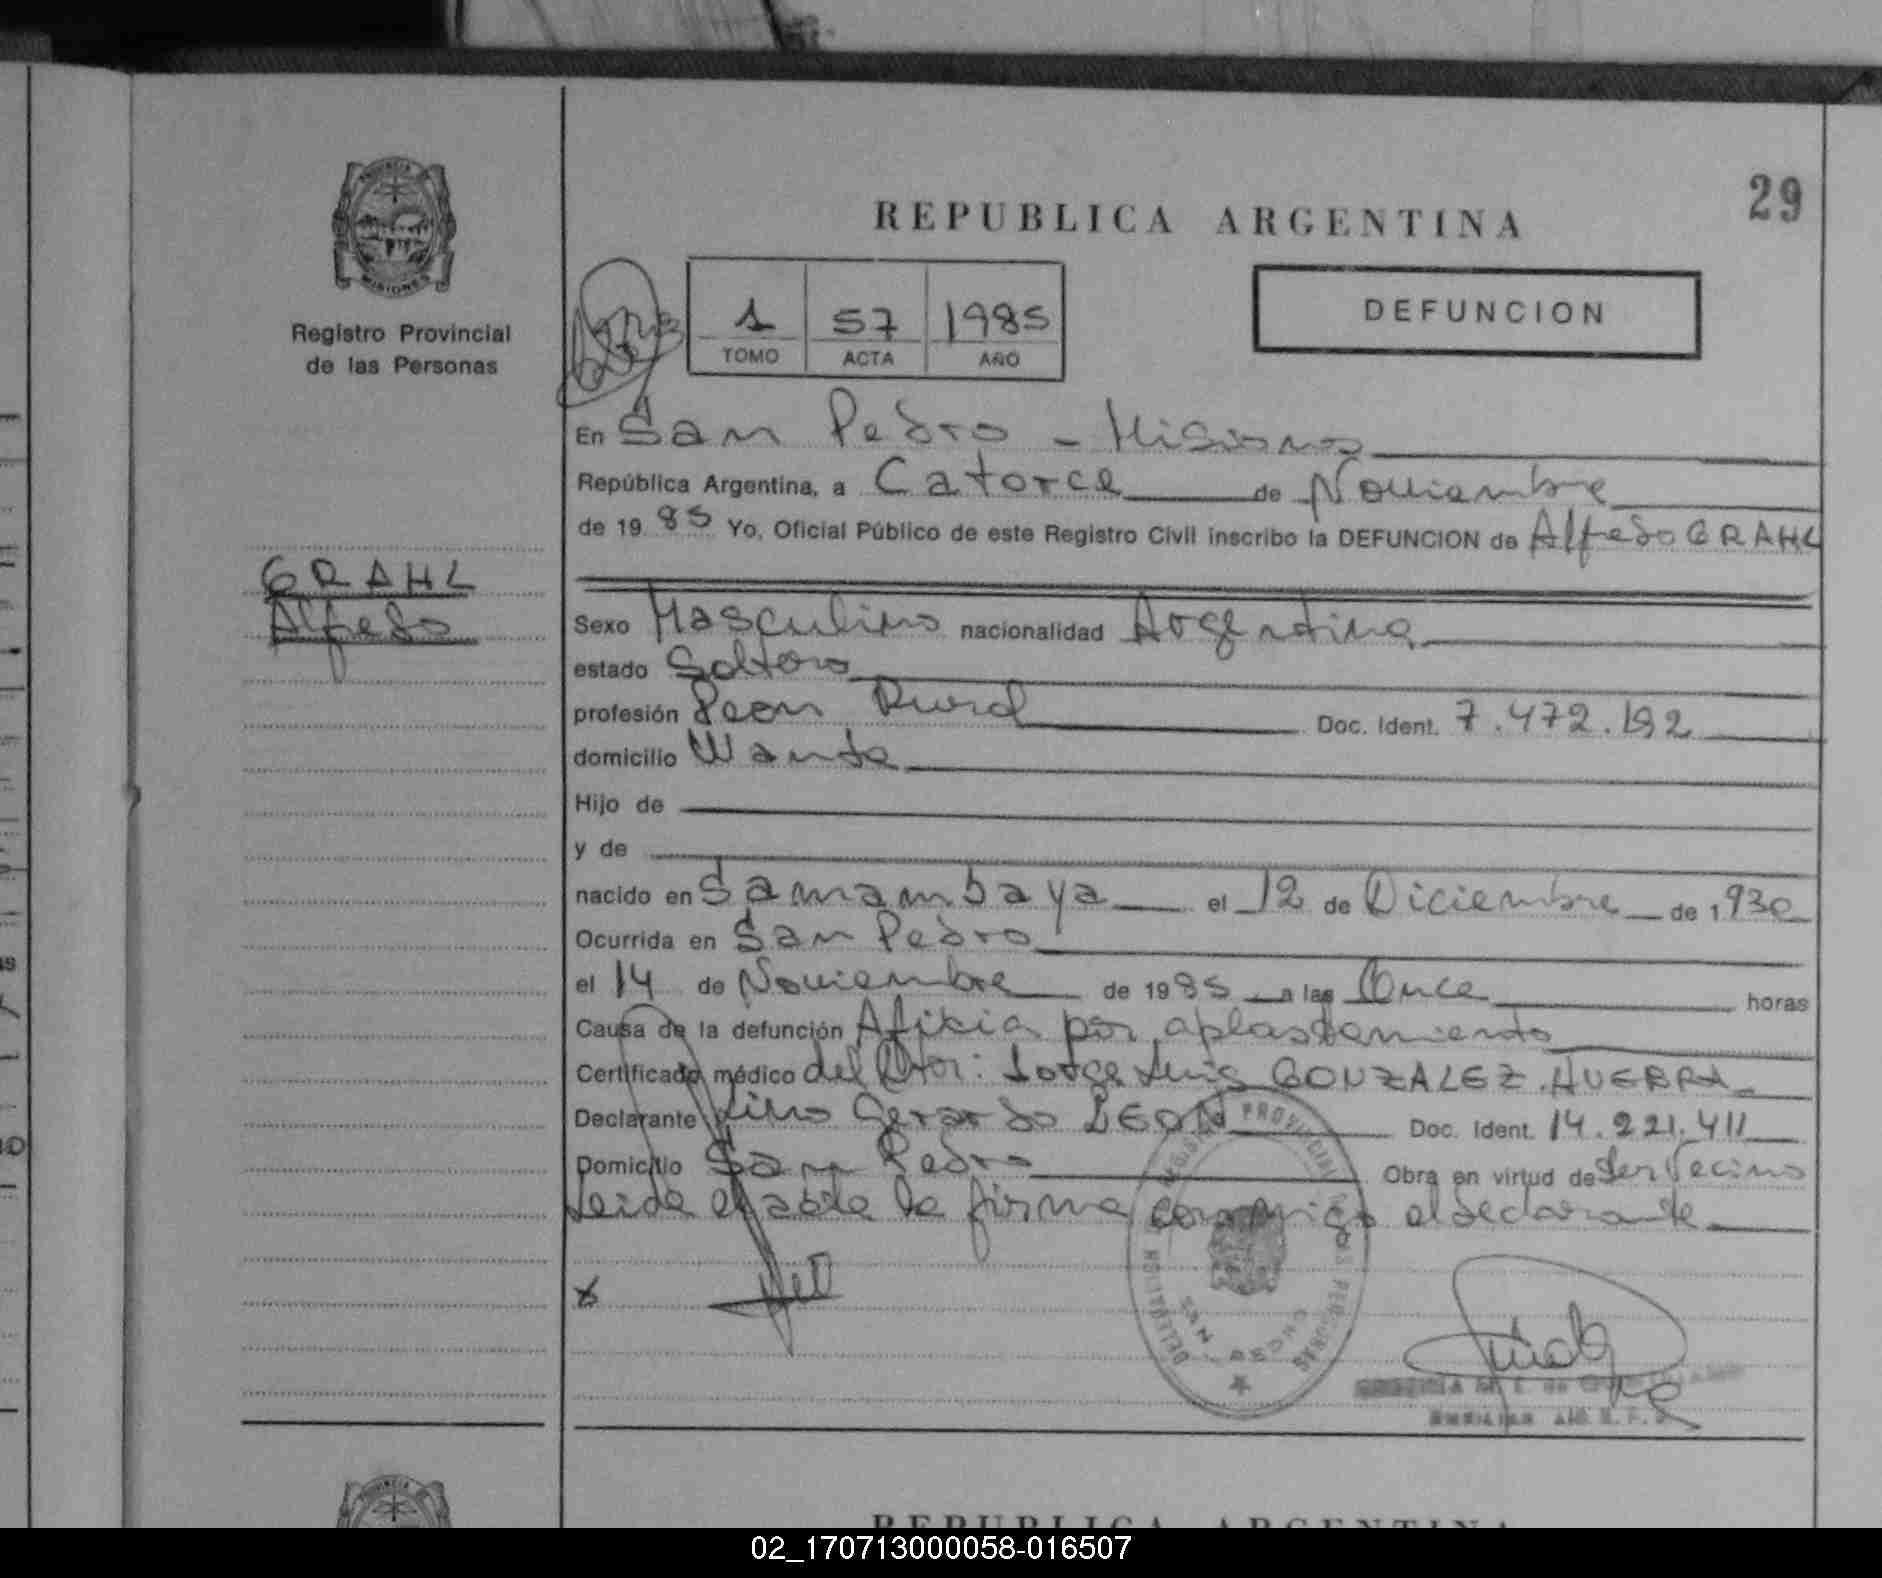 29
REPUBLICA ARGENTINA
PROVINCIA
MISIONES
Registro Provincial
de las Personas
DEFUNCION
1 57 1985
TOMO ACTA AÑO
En San Pedro - Misiones
República Argentina, a Catorce de Noviembre
de 19 85 Yo, Oficial Público de este Registro Civil inscribo la DEFUNCION de Alfredo GRAHL
GRAHL
Alfredo
Sexo Masculino nacionalidad Argentina
estado Soltero
profesión Peon Rural Doc. Ident. 7.472.192
domicilio Wanda
Hijo de
y de
nacido en Samambaya el 12 de Diciembre de 1930
Ocurrida en San Pedro
el 14 de Noviembre de 1985 a las Once horas
Causa de la defunción Afixia por aplastamiento
Certificado médico del Dtor: Jorge Luis GONZALEZ HUEBRA
Declarante Lino Gerardo LEON Doc. Ident. 14.221.411
Domicilio San Pedro Obra en virtud de Ser Vecino
Leida el acta la firma conmigo el declarante
REGISTRO PROVINCIAL DE LAS PERSONAS
DELEGACION
SAN PEDRO
REPUBLICA ARGENTINA
02_170713000058-016507